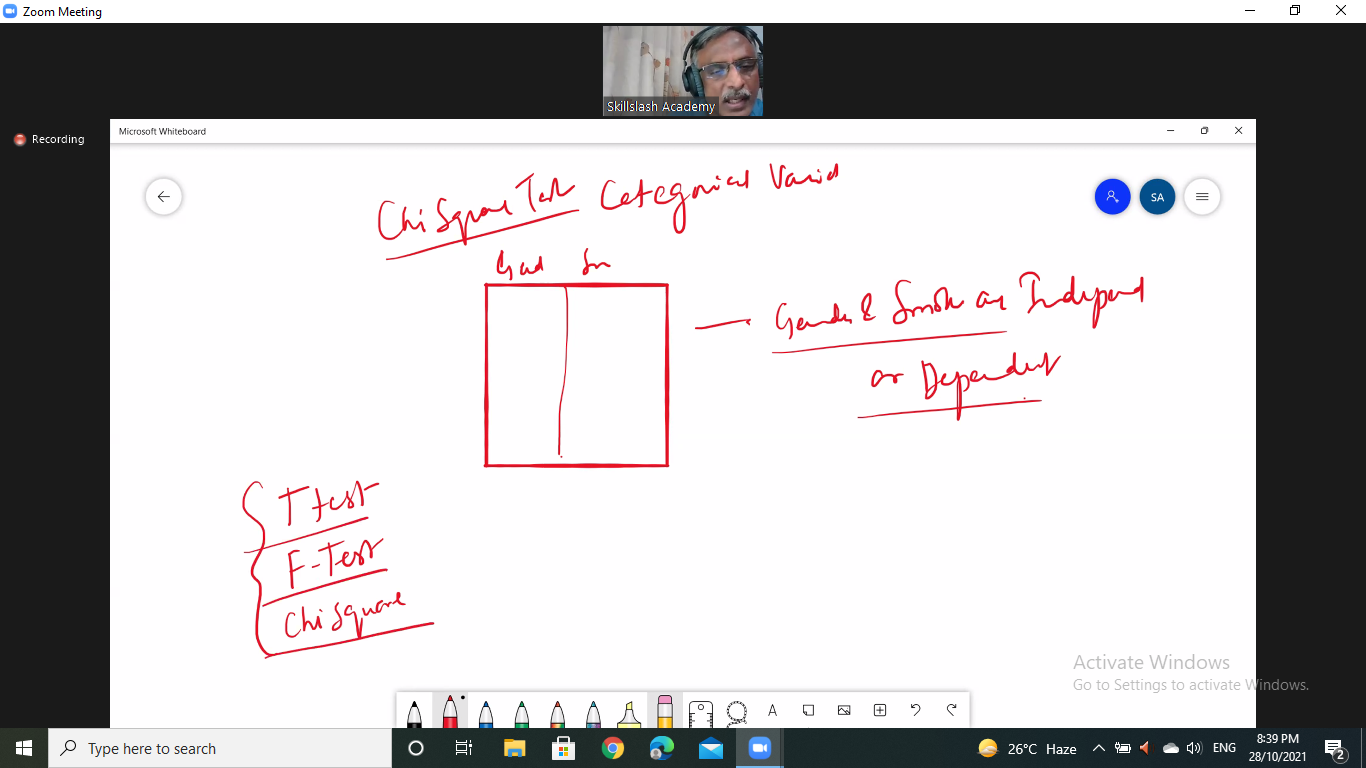 Zoom Meeting
Skillslash Academy
Recording
Microsoft Whiteboard
SA
Chi Square Test Categorical
Gend Sm
Gender & Smoke are Independ
or Dependent
T test
F-Test
Chi Square
Activate Windows
Go to Settings to activate Windows.
A
Type here to search
26°C Haze
ENG
8:39 PM
28/10/2021
2